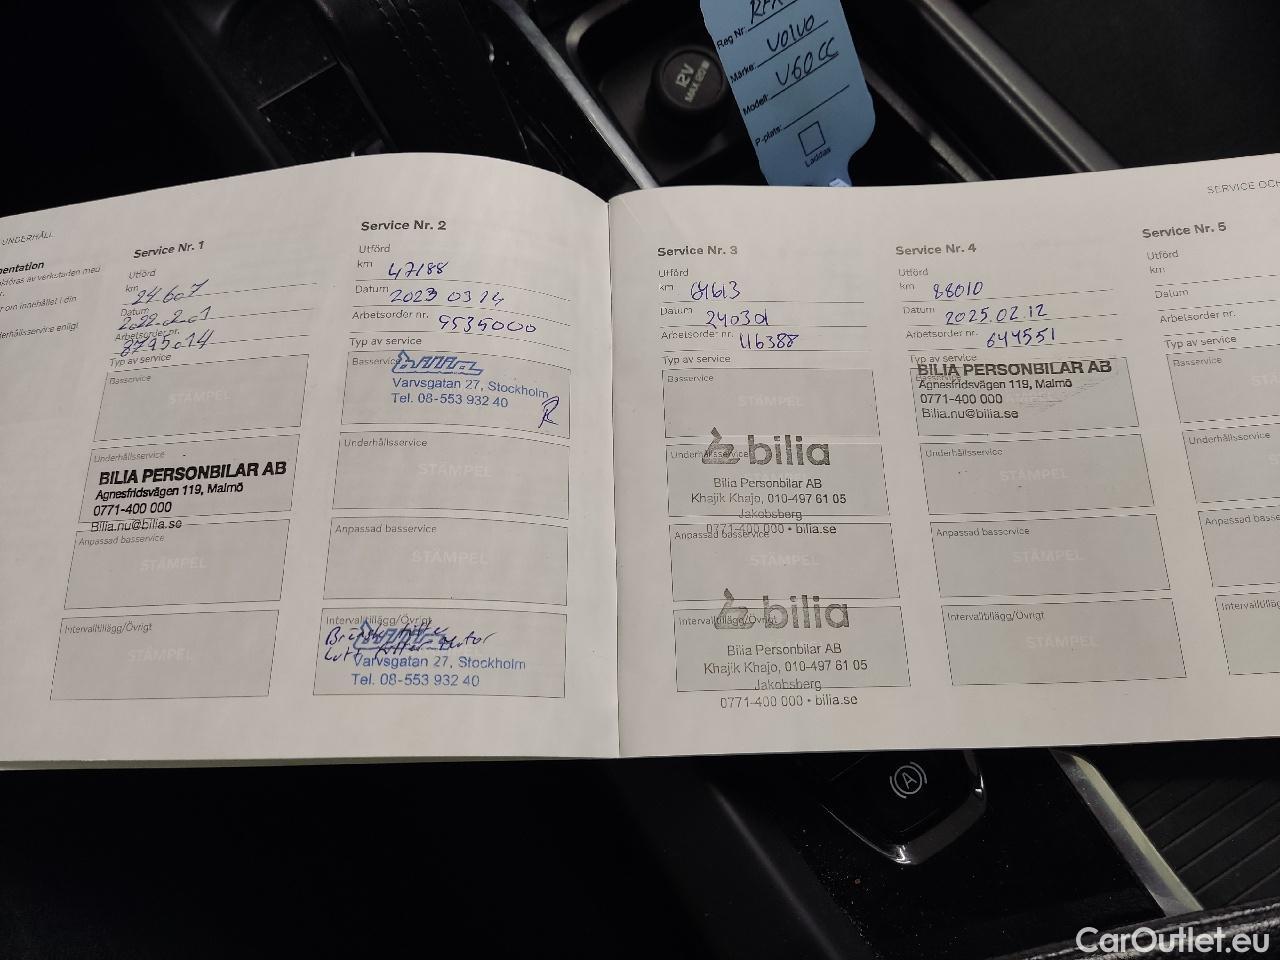 Reg Nr:
Märke: VOLVO
Modell: V60CC
P-plats:
Laddas
12V
MAX 120W
UNDERHÅLL
SERVICE OCH
Service Nr. 1
Utförd
km 24.607
Datum
Arbetsorder nr.
Typ av service
Basservice
STÄMPEL
Underhållsservice
BILIA PERSONBILAR AB
Agnesfridsvägen 119, Malmö
0771-400 000
Bilia.nu@bilia.se
Anpassad basservice
STÄMPEL
Intervalltillägg/Övrigt
STÄMPEL
Service Nr. 2
Utförd
km 47188
Datum 2023 03 14
Arbetsorder nr. 9535000
Typ av service
Basservice
bilia
Varvsgatan 27, Stockholm
Tel. 08-553 932 40
Underhållsservice
STÄMPEL
Anpassad basservice
STÄMPEL
Intervalltillägg/Övrigt
Varvsgatan 27, Stockholm
Tel. 08-553 932 40
Service Nr. 3
Utförd
km
Datum
Arbetsorder nr. 416388
Typ av service
Basservice
STÄMPEL
Underhållsservice
bilia
Bilia Personbilar AB
Khajik Khajo, 010-497 61 05
Jakobsberg
0771-400 000 • bilia.se
Anpassad basservice
STÄMPEL
Intervalltillägg/Övrigt
bilia
Bilia Personbilar AB
Khajik Khajo, 010-497 61 05
Jakobsberg
0771-400 000 • bilia.se
Service Nr. 4
Utförd
km 88010
Datum 2025.02.12
Arbetsorder nr. 644551
Typ av service
BILIA PERSONBILAR AB
Agnesfridsvägen 119, Malmö
0771-400 000
Bilia.nu@bilia.se
Underhållsservice
STÄMPEL
Anpassad basservice
STÄMPEL
Intervalltillägg/Övrigt
STÄMPEL
Service Nr. 5
Utförd
km
Datum
Arbetsorder nr.
Typ av service
Basservice
Underhållsservice
Anpassad basservice
A
CarOutlet.eu